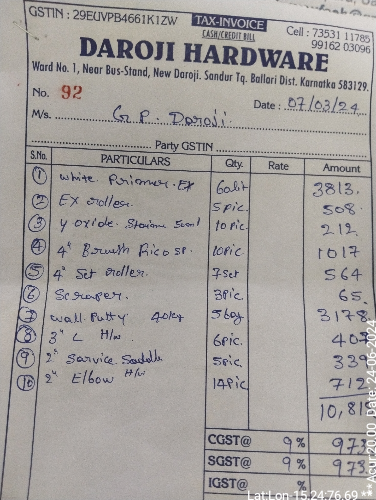 GSTIN : 29EUVPB4661K1ZW TAX-INVOICE Cell : 73531 11785
CASH/CREDIT BILL 99162 03096
DAROJI HARDWARE
Ward No. 1, Near Bus-Stand, New Daroji. Sandur Tq. Ballari Dist. Karnatka 583129.
No. 92 Date : 07/03/24
M/s. G.P. Daroji.
Party GSTIN
S.No. PARTICULARS Qty. Rate Amount
1 White Primer EX 60lit 3813.
2 EX roller 5pic. 508.
3 y oxide. 10pic. 212.
4 4" Brush 10pic. 1017
5 4" Set roller. 7set 564
6 Scraper. 3pic. 65.
7 wall putty 40kg 5bag 3178
8 3" L H/w 6pic. 407
9 2" Sarvice Saddle 5pic. 339
10 2" Elbow H/w 14pic 712
10,81
CGST@ 9 % 973
SGST@ 9 % 973
IGST@ %
Lat Lon 15.24,76.69 *** Acur 20.00 Date: 24-06-2024